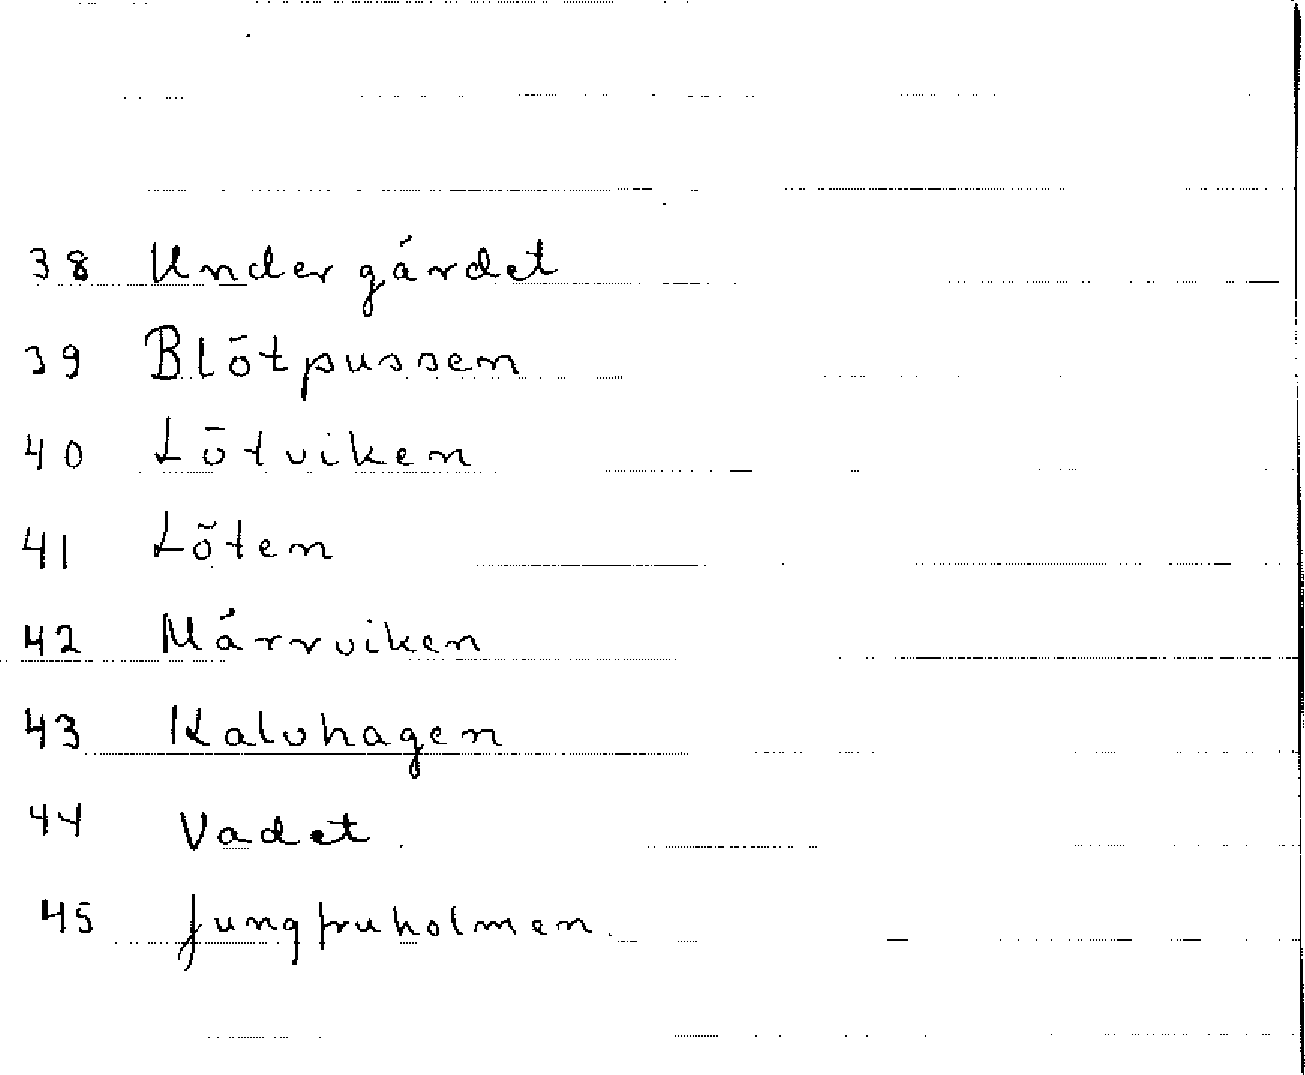 38 Undergärdet
39 Blötpussen
40 Lötviken
41 Löten
42 Märrviken
43 Kalvhagen
44 Vadet.
45 Jungfruholmen.